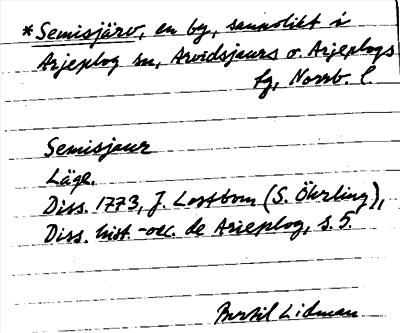 *Semisjärv, en by, sannolikt i
Arjeplog sn, Arvidsjaurs o. Arjeplogs
fg, Norrb. l.
Semisjaur
Läge.
Diss. 1773, J. Lostbom (S. Öhrling),
Diss. hist.-oec. de Arieplog, s. 5.
Bertil Lidman